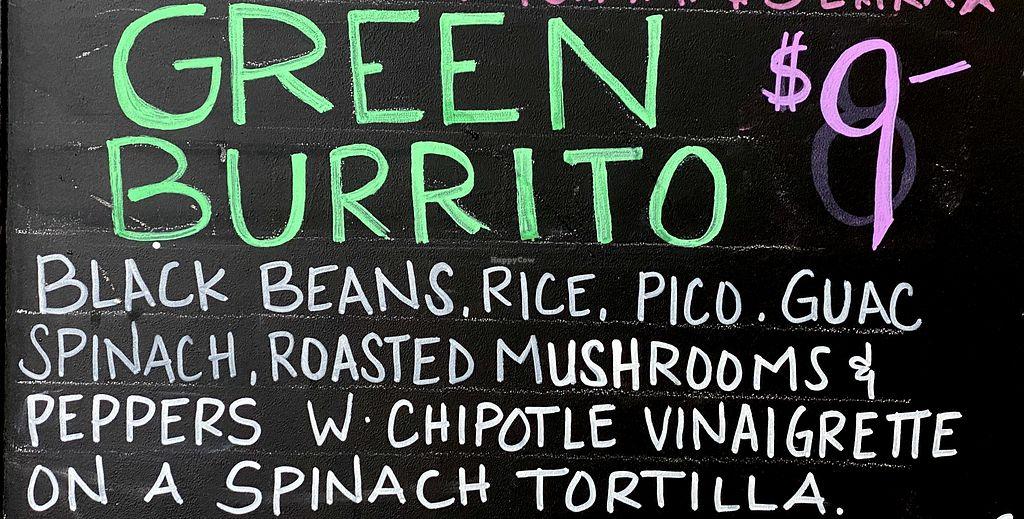 GREEN
BURRITO
$9-
HappyCow
BLACK BEANS, RICE, PICO. GUAC
SPINACH, ROASTED MUSHROOMS &
PEPPERS W. CHIPOTLE VINAIGRETTE
ON A SPINACH TORTILLA.